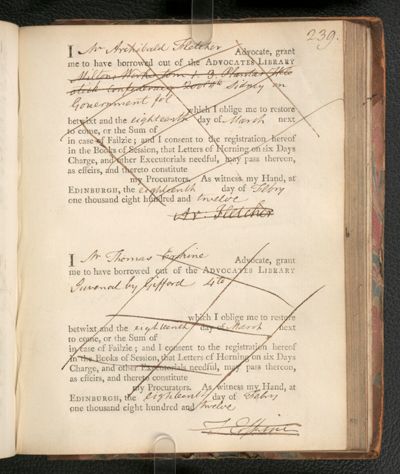 239.
I Mr Archibald Fletcher Advocate, grant
me to have borrowed out of the ADVOCATES LIBRARY
Miltons Works tom 1. 3.
Sidney on
Government fol
which I oblige me to restore
betwixt and the eighteenth day of March next
to come, or the Sum of
in case of Failzie; and I consent to the registration hereof
in the Books of Session, that Letters of Horning on six Days
Charge, and other Executorials needful, may pass thereon,
as effeirs, and thereto constitute
my Procurators. As witness my Hand, at
EDINBURGH, the eighteenth day of Febry
one thousand eight hundred and twelve
Ar: Fletcher
I Mr Thomas Erskine Advocate, grant
me to have borrowed out of the ADVOCATES LIBRARY
Juvenal by Gifford 4to
which I oblige me to restore
betwixt and the eighteenth day of March next
to come, or the Sum of
in case of Failzie; and I consent to the registration hereof
in the Books of Session, that Letters of Horning on six Days
Charge, and other Executorials needful, may pass thereon,
as effeirs, and thereto constitute
my Procurators. As witness my Hand, at
EDINBURGH, the eighteenth day of Febry
one thousand eight hundred and twelve
T Erskine